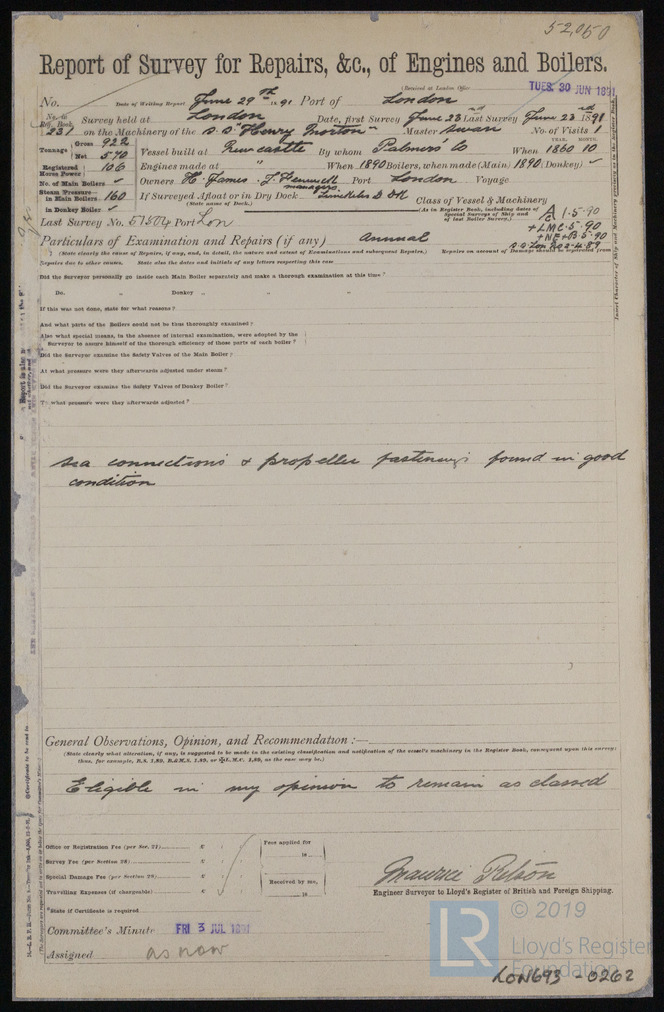 52,050
Report of Survey for Repairs, &c., of Engines and Boilers.
(Received at London Office TUES. 30 JUN 1891
No. Date of Writing Report June 29th 1891 Port of London
No. in Reg. Book. Survey held at London Date, first Survey June 23rd Last Survey June 23rd 1891
231 on the Machinery of the S.S. "Henry Morton" Master Swan No. of Visits 1
Tonnage Gross 922 Net 570 Vessel built at Newcastle By whom Palmers' Co When 1860 10
YEAR. MONTH.
Registered Horse Power 106 Engines made at " When 1890 Boilers, when made (Main) 1890 (Donkey) ✓
No. of Main Boilers ✓ Owners H. James. J. Fenwick managers Port London Voyage
Steam Pressure in Main Boilers 160 If Surveyed Afloat or in Dry Dock D DK
(State name of Dock.)
in Donkey Boiler ✓
Class of Vessel & Machinery
(As in Register Book, including dates of Special Surveys of Ship and of last Boiler Survey.)
A 1 · 5 · 90
+ LMC · 5 · 90
+ NE + B · 5 · 90
S.S. Lon 4.89
Last Survey No. 51504 Port Lon
Particulars of Examination and Repairs (if any) Annual
(State clearly the cause of Repairs, if any, and, in detail, the nature and extent of Examinations and subsequent Repairs.) Repairs on account of Damage should be separated from
Repairs due to other causes. State also the dates and initials of any letters respecting this case
Did the Surveyor personally go inside each Main Boiler separately and make a thorough examination at this time?
Do. „ Donkey „ „ „
If this was not done, state for what reasons?
And what parts of the Boilers could not be thus thoroughly examined?
Also what special means, in the absence of internal examination, were adopted by the
Surveyor to assure himself of the thorough efficiency of those parts of each boiler?
Did the Surveyor examine the Safety Valves of the Main Boiler?
At what pressure were they afterwards adjusted under steam?
Did the Surveyor examine the Safety Valves of Donkey Boiler?
To what pressure were they afterwards adjusted?
Sea connections & propeller fastenings found in good
condition
General Observations, Opinion, and Recommendation:—
(State clearly what alteration, if any, is suggested to be made in the existing classification and notification of the vessel's machinery in the Register Book, consequent upon this survey;
thus, for example, B.S. 1,89, B.&M.S. 1,89, or ✠L.M.C. 1,89, as the case may be.)
Eligible in my opinion to remain as classed
Office or Registration Fee (per Sec. 27) £
Survey Fee (per Section 28) £
Special Damage Fee (per Section 28) £
Travelling Expenses (if chargeable) £
Fees applied for
18
Received by me,
18
Engineer Surveyor to Lloyd's Register of British and Foreign Shipping.
*State if Certificate is required
Committee's Minute FRI 3 JUL 1891
Assigned as now
LR
© 2019
Lloyd's Register
Foundation
LON693-0262